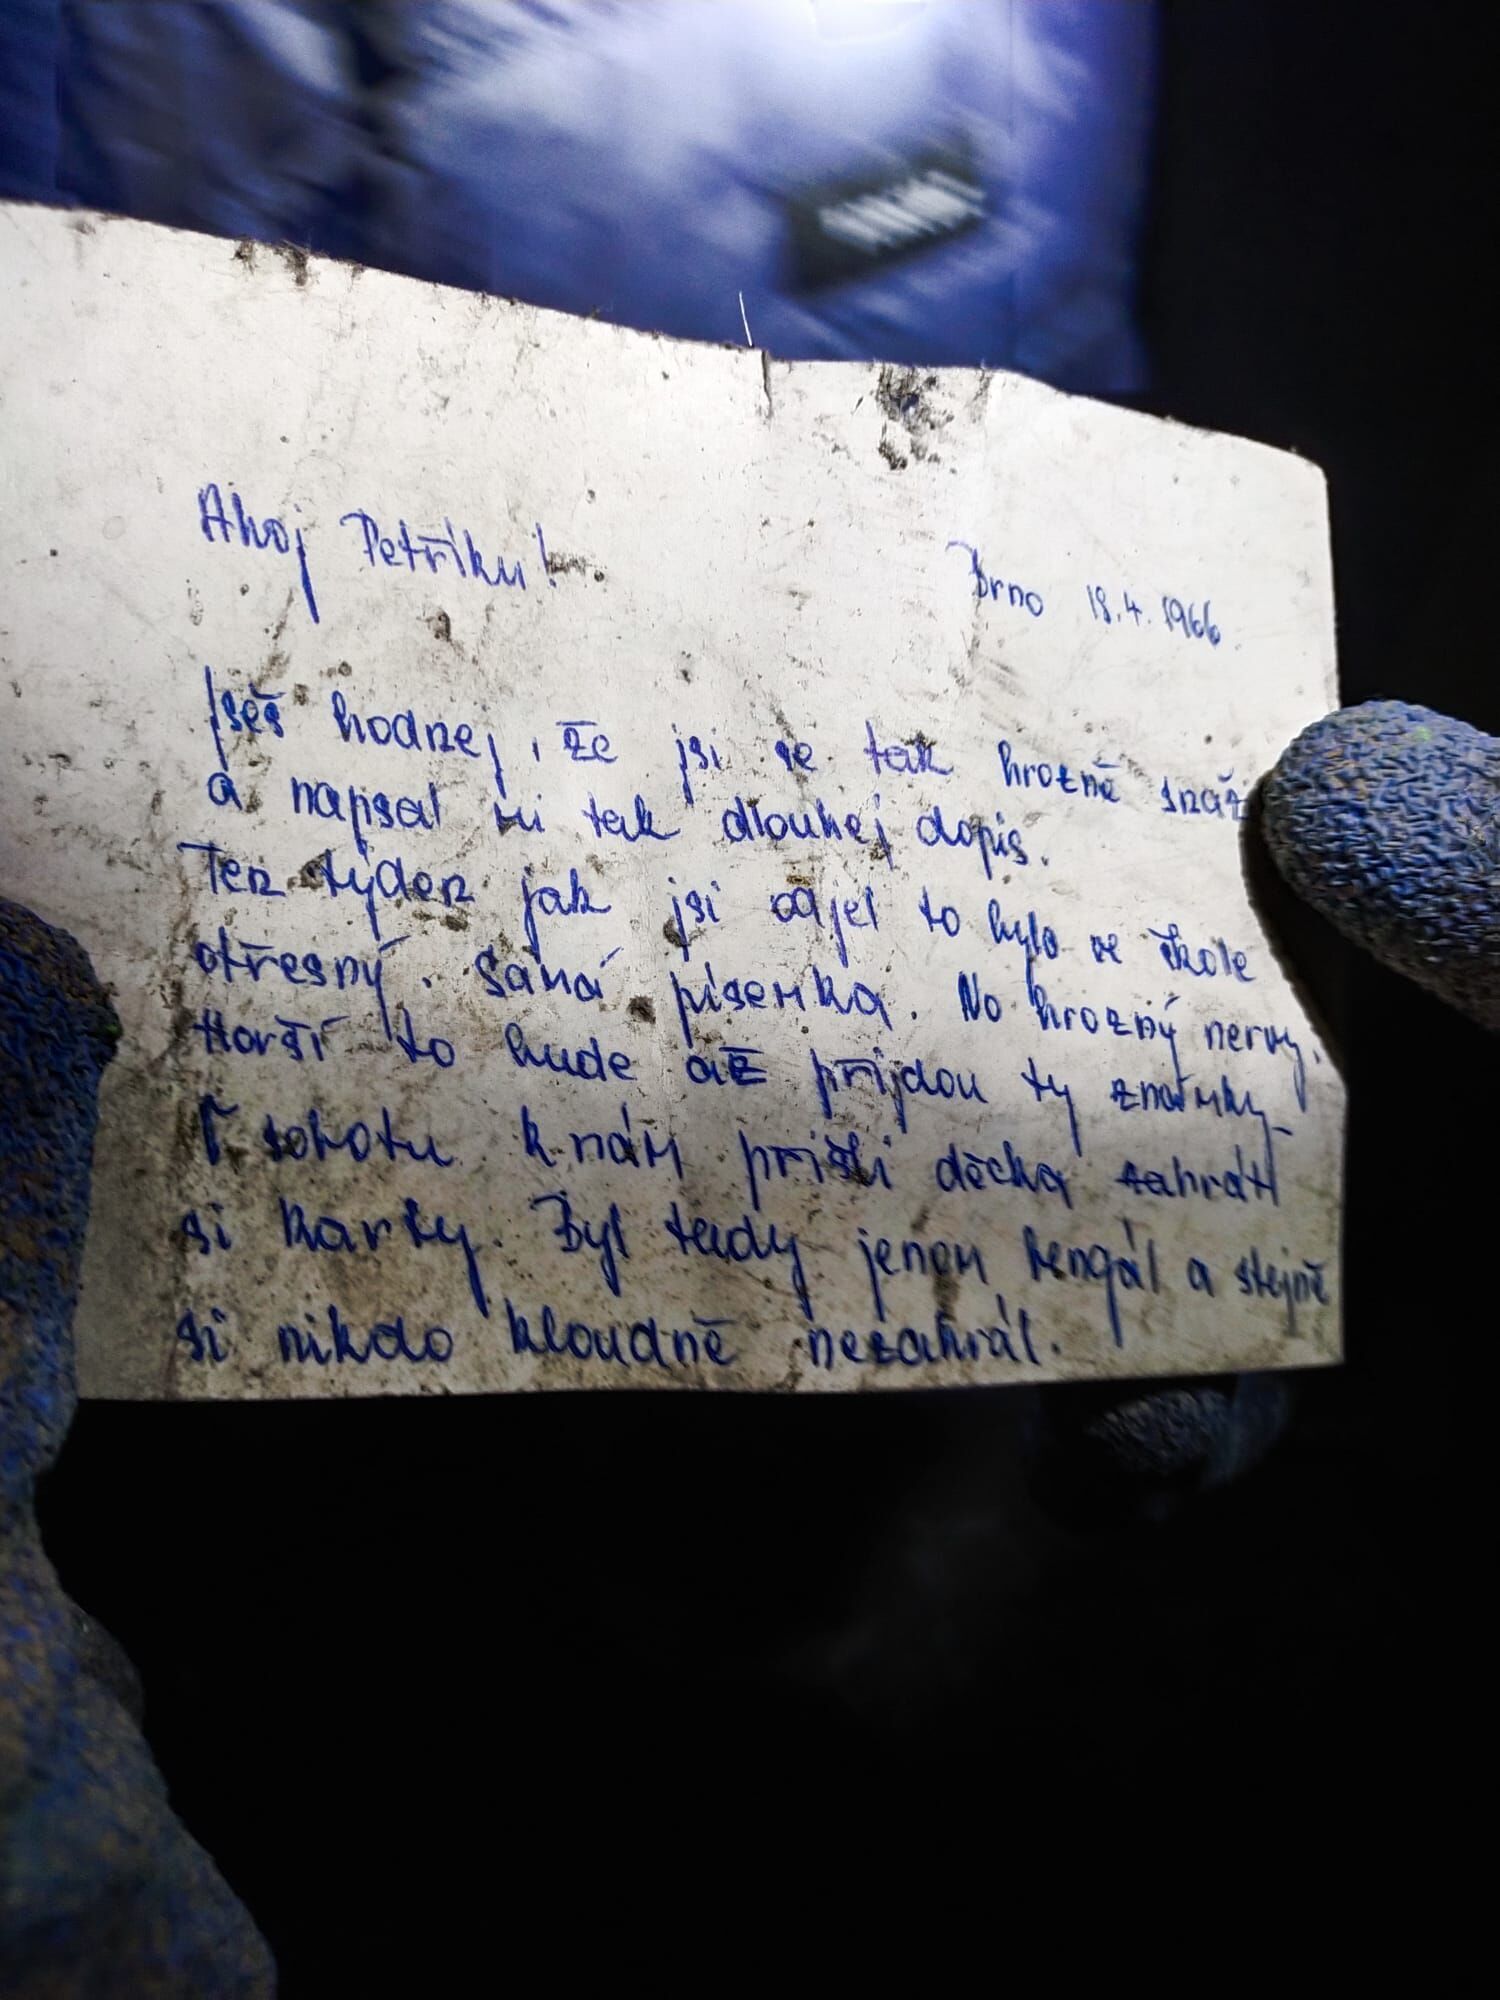 Ahoj Petříku!
Brno 18.4.1966.
Jseš hodnej, že jsi se tak hrozně snaž
a napsal mi tak dlouhej dopis.
Ten týden jak jsi odjel to bylo ve škole
otřesný. Samá písemka. No hrozný nervy.
Horší to bude až přijdou ty známky.
V sobotu k nám přišli děcka zahrát
si karty. Byl tady jenom bengál a stejně
si nikdo kloudně nezahrál.